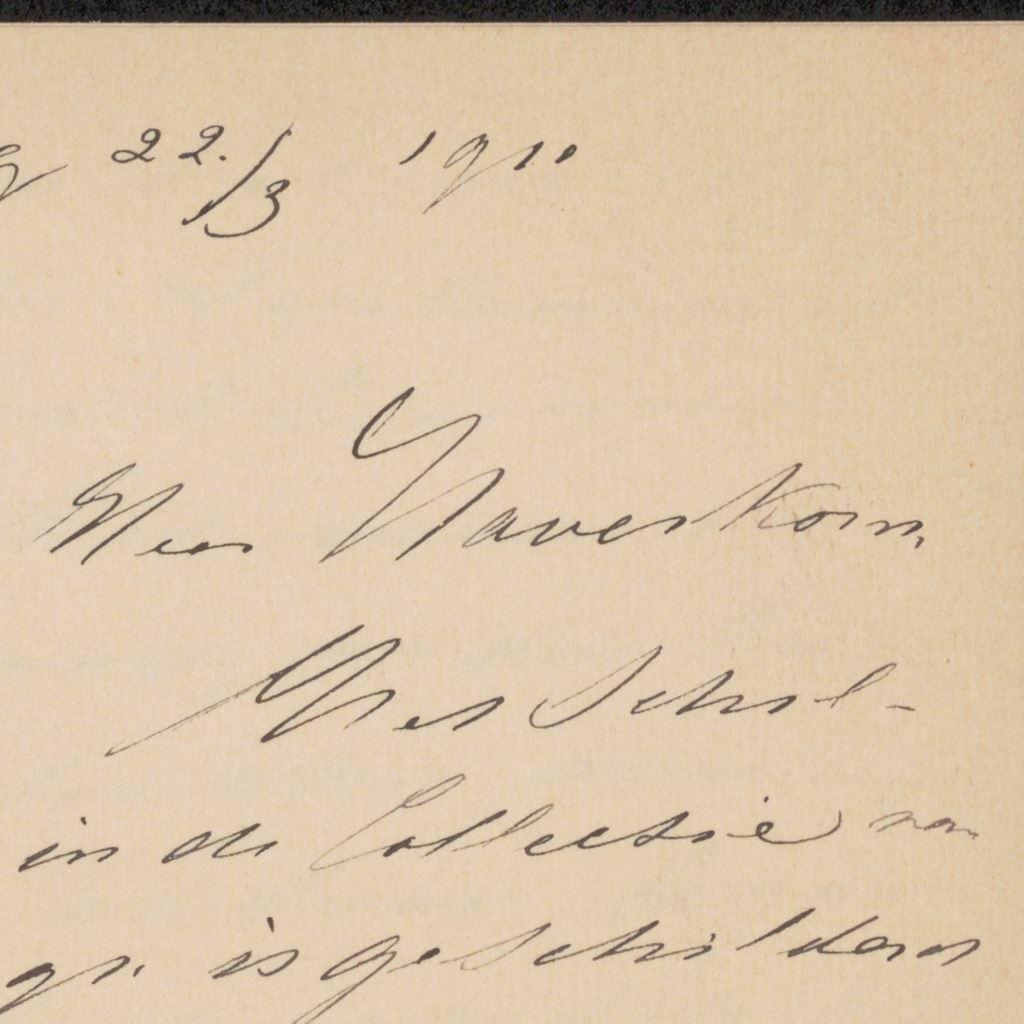 22./3 1910
Heer Haverkorn,
Het Schil-
in de Collectie van
is geschilderd